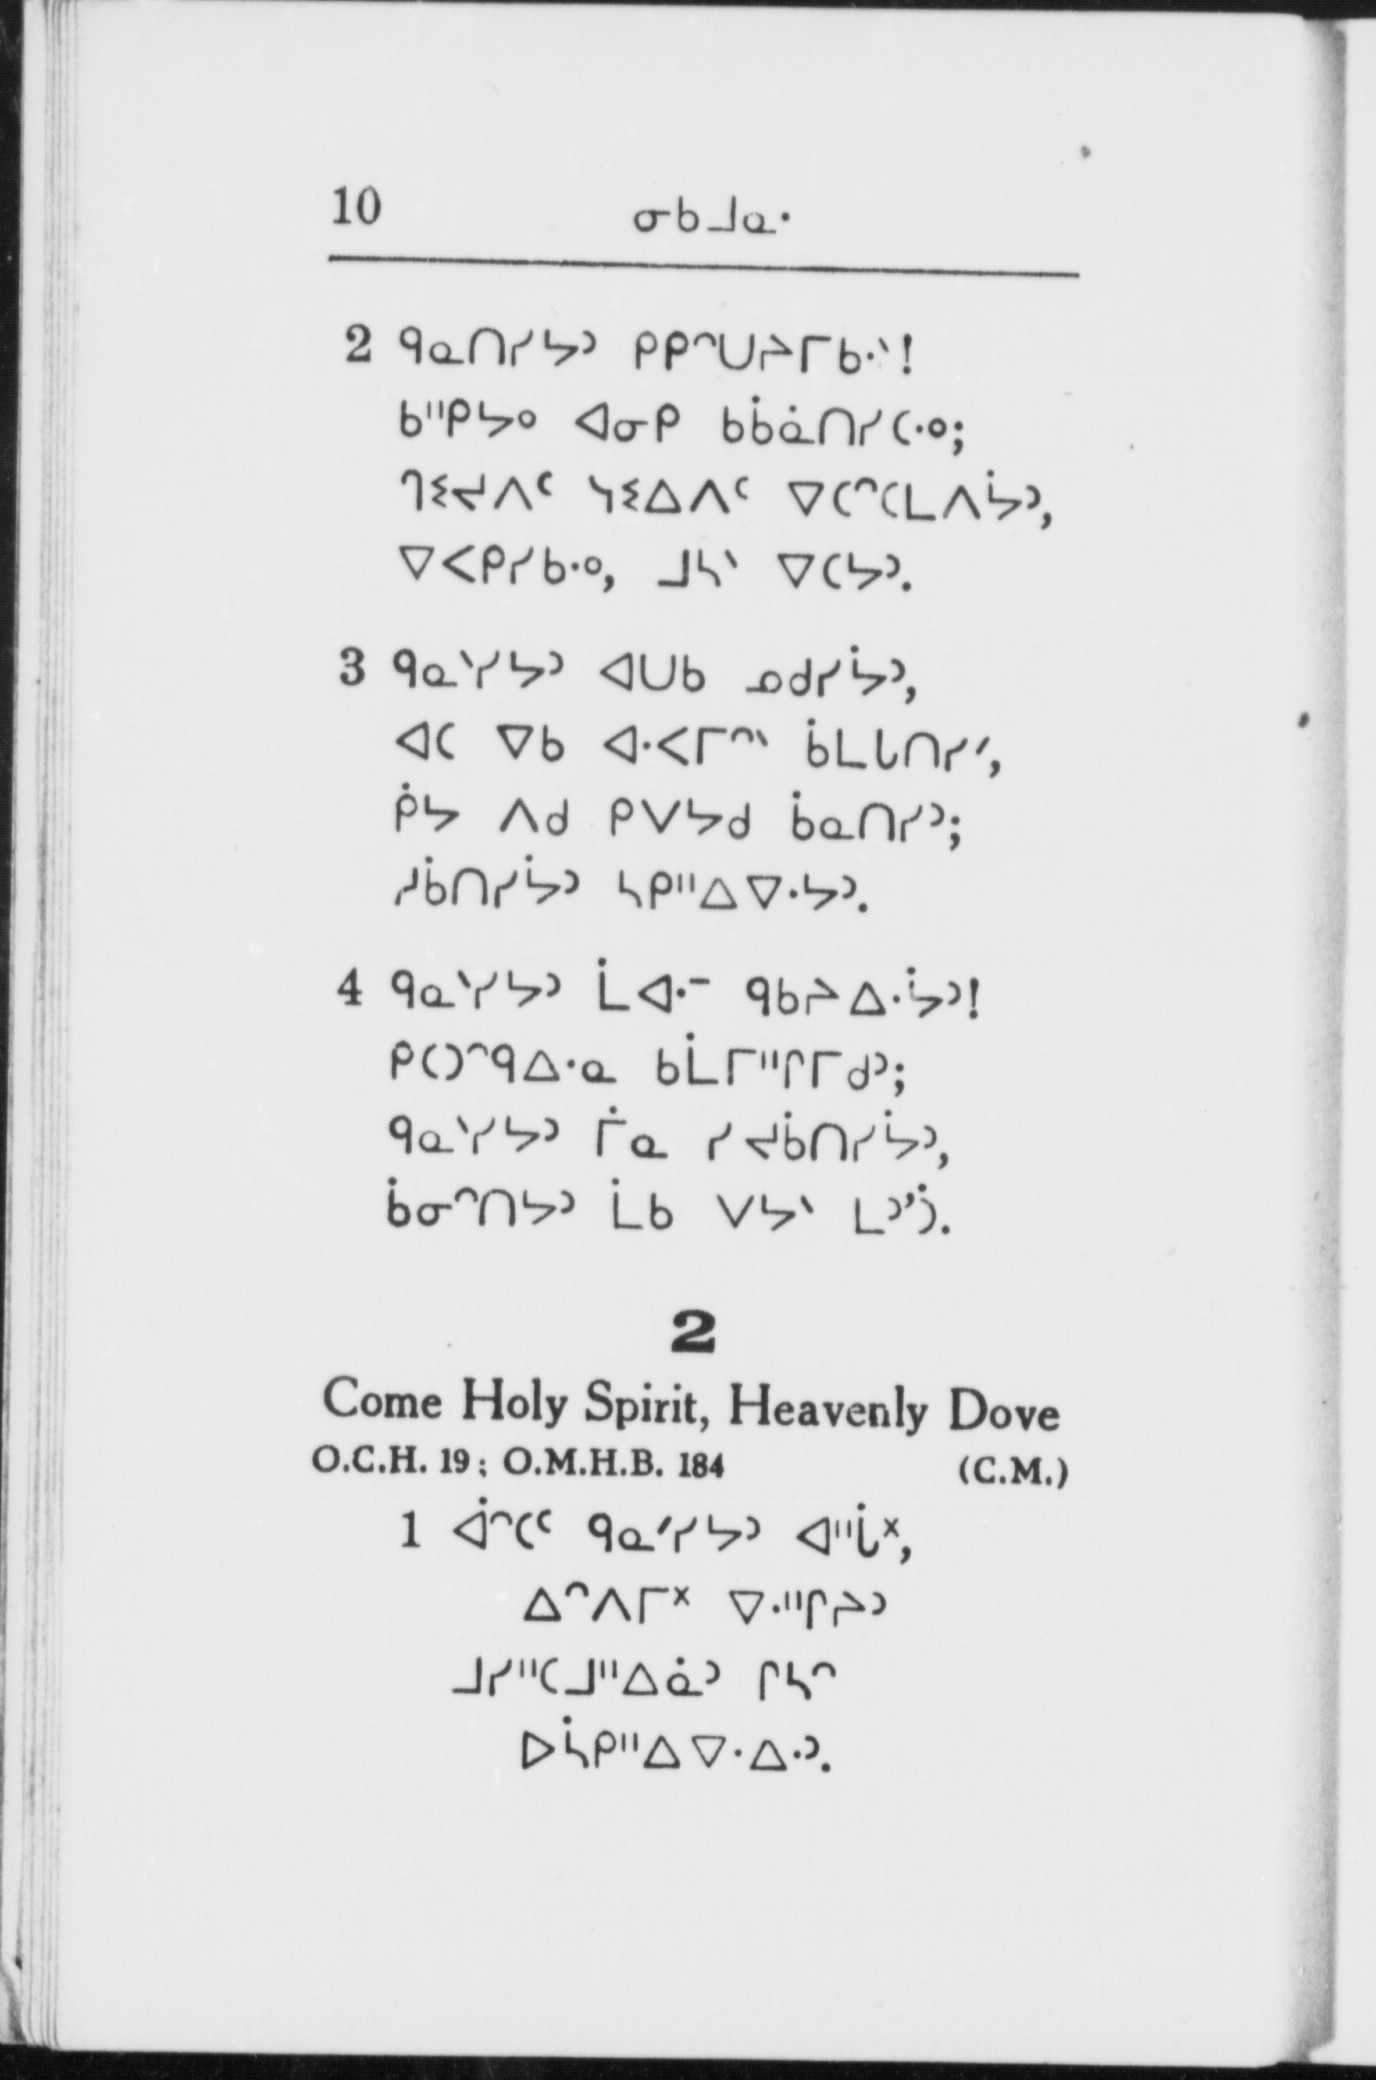 10 ᓂᑲᒧᓇᐧ
2 ᑫᓇᑎᓯᔭᐣ ᑭᑭᐢᑌᔨᒥᑲᐧᐠ!
ᑲᐦᑭᔭᐤ ᐊᓂᑭ ᑲᑳᓈᑎᓯᑕᐧᐤ;
ᒉᕒᔪᐱᑦ ᓭᕒᐃᐱᑦ ᐁᑕᐢᑕᒪᐱᔮᐣ,
ᐁᐸᑭᓯᑲᐧᐤ, ᒧᓴᐠ ᐁᑕᔭᐣ.
3 ᑫᓇᐠᓯᔭᐣ ᐊᑌᑲ ᓄᑯᓯᔮᐣ,
ᐊᑕ ᐁᑲ ᐊᐧᐸᒥᐢᐠ ᑳᒪᒐᑎᓯᐟ,
ᑮᔭ ᐱᑯ ᑭᐯᔭᑯ ᑳᓇᑎᓯᐣ;
ᓱᑳᑎᓯᔮᐣ ᓴᑭᐦᐃᐁᐧᔭᐣ.
4 ᑫᓇᐠᓯᔭᐣ ᒫᐊᐧᐨ ᑫᑲᔨᐃᐧᔮᐣ!
ᑭᑕᑐᐢᑫᐃᐧᓇ ᑲᒫᒥᐦᒋᒥᑯᐣ;
ᑫᓇᐠᓯᔭᐣ ᒦᓇ ᓯᔪᑳᑎᓯᔮᐣ,
ᑳᓂᐢᑎᔭᐣ ᒫᑲ ᐯᔭᐠ ᒪᐣᐟᑑ.
2
Come Holy Spirit, Heavenly Dove
O.C.H. 19; O.M.H.B. 184 (C.M.)
1 ᐋᐢᑕᑦ ᑫᓇᐟᓯᔭᐣ ᐊᐦᒑᕽ,
ᐃᐢᐱᒥᕽ ᐁᐧᐦᒋᔨᐣ
ᒧᓯᐦᑕᒧᐦᐃᓈᐣ ᒋᓴᐢ
ᐅᓵᑭᐦᐃᐁᐧᐃᐧᐣ.